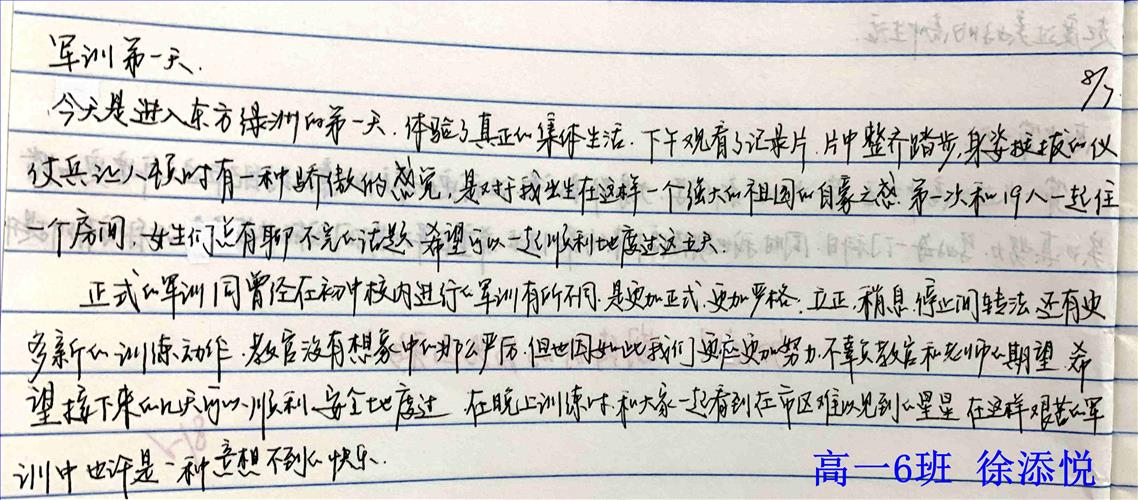 军训第一天.
8/7
今天是进入东方绿洲的第一天,体验了真正的集体生活.下午观看了记录片,片中整齐踏步,身姿挺拔的仪
仗兵让人顿时有一种骄傲的感觉,是对于我出生在这样一个强大的祖国的自豪之感.第一次和19人一起住
一个房间,女生们总有聊不完的话题 希望可以一起顺利地度过这五天.
正式的军训同曾经在初中校内进行的军训有所不同.是更加正式,更加严格.立正,稍息,停止间转法,还有更
多新的训练动作.教官没有想象中的那么严厉.但也因如此我们更应更加努力,不辜负教官和老师的期望.希
望接下来的几天可以顺利,安全地度过 在晚上训练时,和大家一起看到在市区难以见到的星星 在这样艰苦的军
训中也许是一种意想不到的快乐.
高一6班 徐添悦